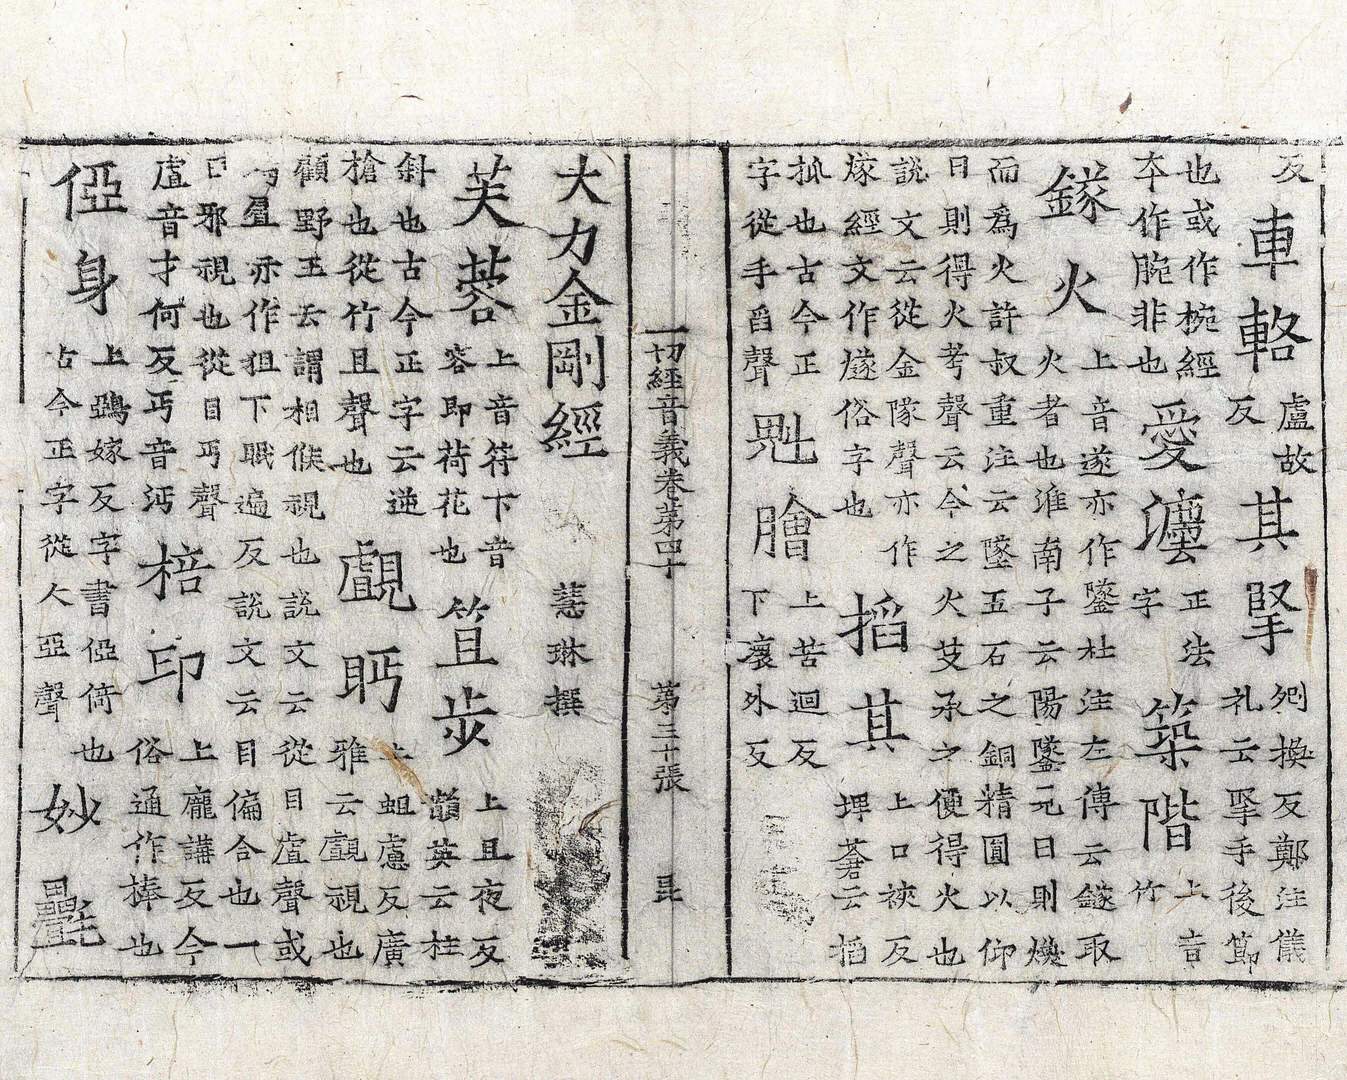 反 車輅 盧故
反 其掔 剜換反鄭注儀
礼云掔手後節
也或作椀經
本作腕非也 愛瀍 正法
字 築階 上音
竹
鐩火 上音遂亦作鐆杜注左傳云鐩取
火者也淮南子云陽鐆元日則燠
而爲火許叔重注云鐆五石之銅精圓以仰
日則得火考聲云今之火艾承之便得火也
說文云從金隊聲亦作
㸂經文作燧俗字也 搯其 上口裌反
埤蒼云搯
抓也古今正
字從手舀聲 魁膾 上苦迴反
下瓌外反
一切經音義卷第四十 第三十張 昆
大力金剛經 慧琳撰
芙蓉 上音符下音
容即荷花也 笡步 上且夜反
顜英云柱
斜也古今正字云逆
槍也從竹且聲也 覰眄 上蛆慮反廣
雅云覰視也
顧野王云謂相候視也說文云從目虘聲或
亦作狙下眠遍反說文云目偏合也一
曰邪視也從目丏聲
虘音才何反丏音沔 棓印 上龐講反今
俗通作棒也
俹身 上鵶嫁反字書俹倚也
古今正字從人亞聲 妙㲲